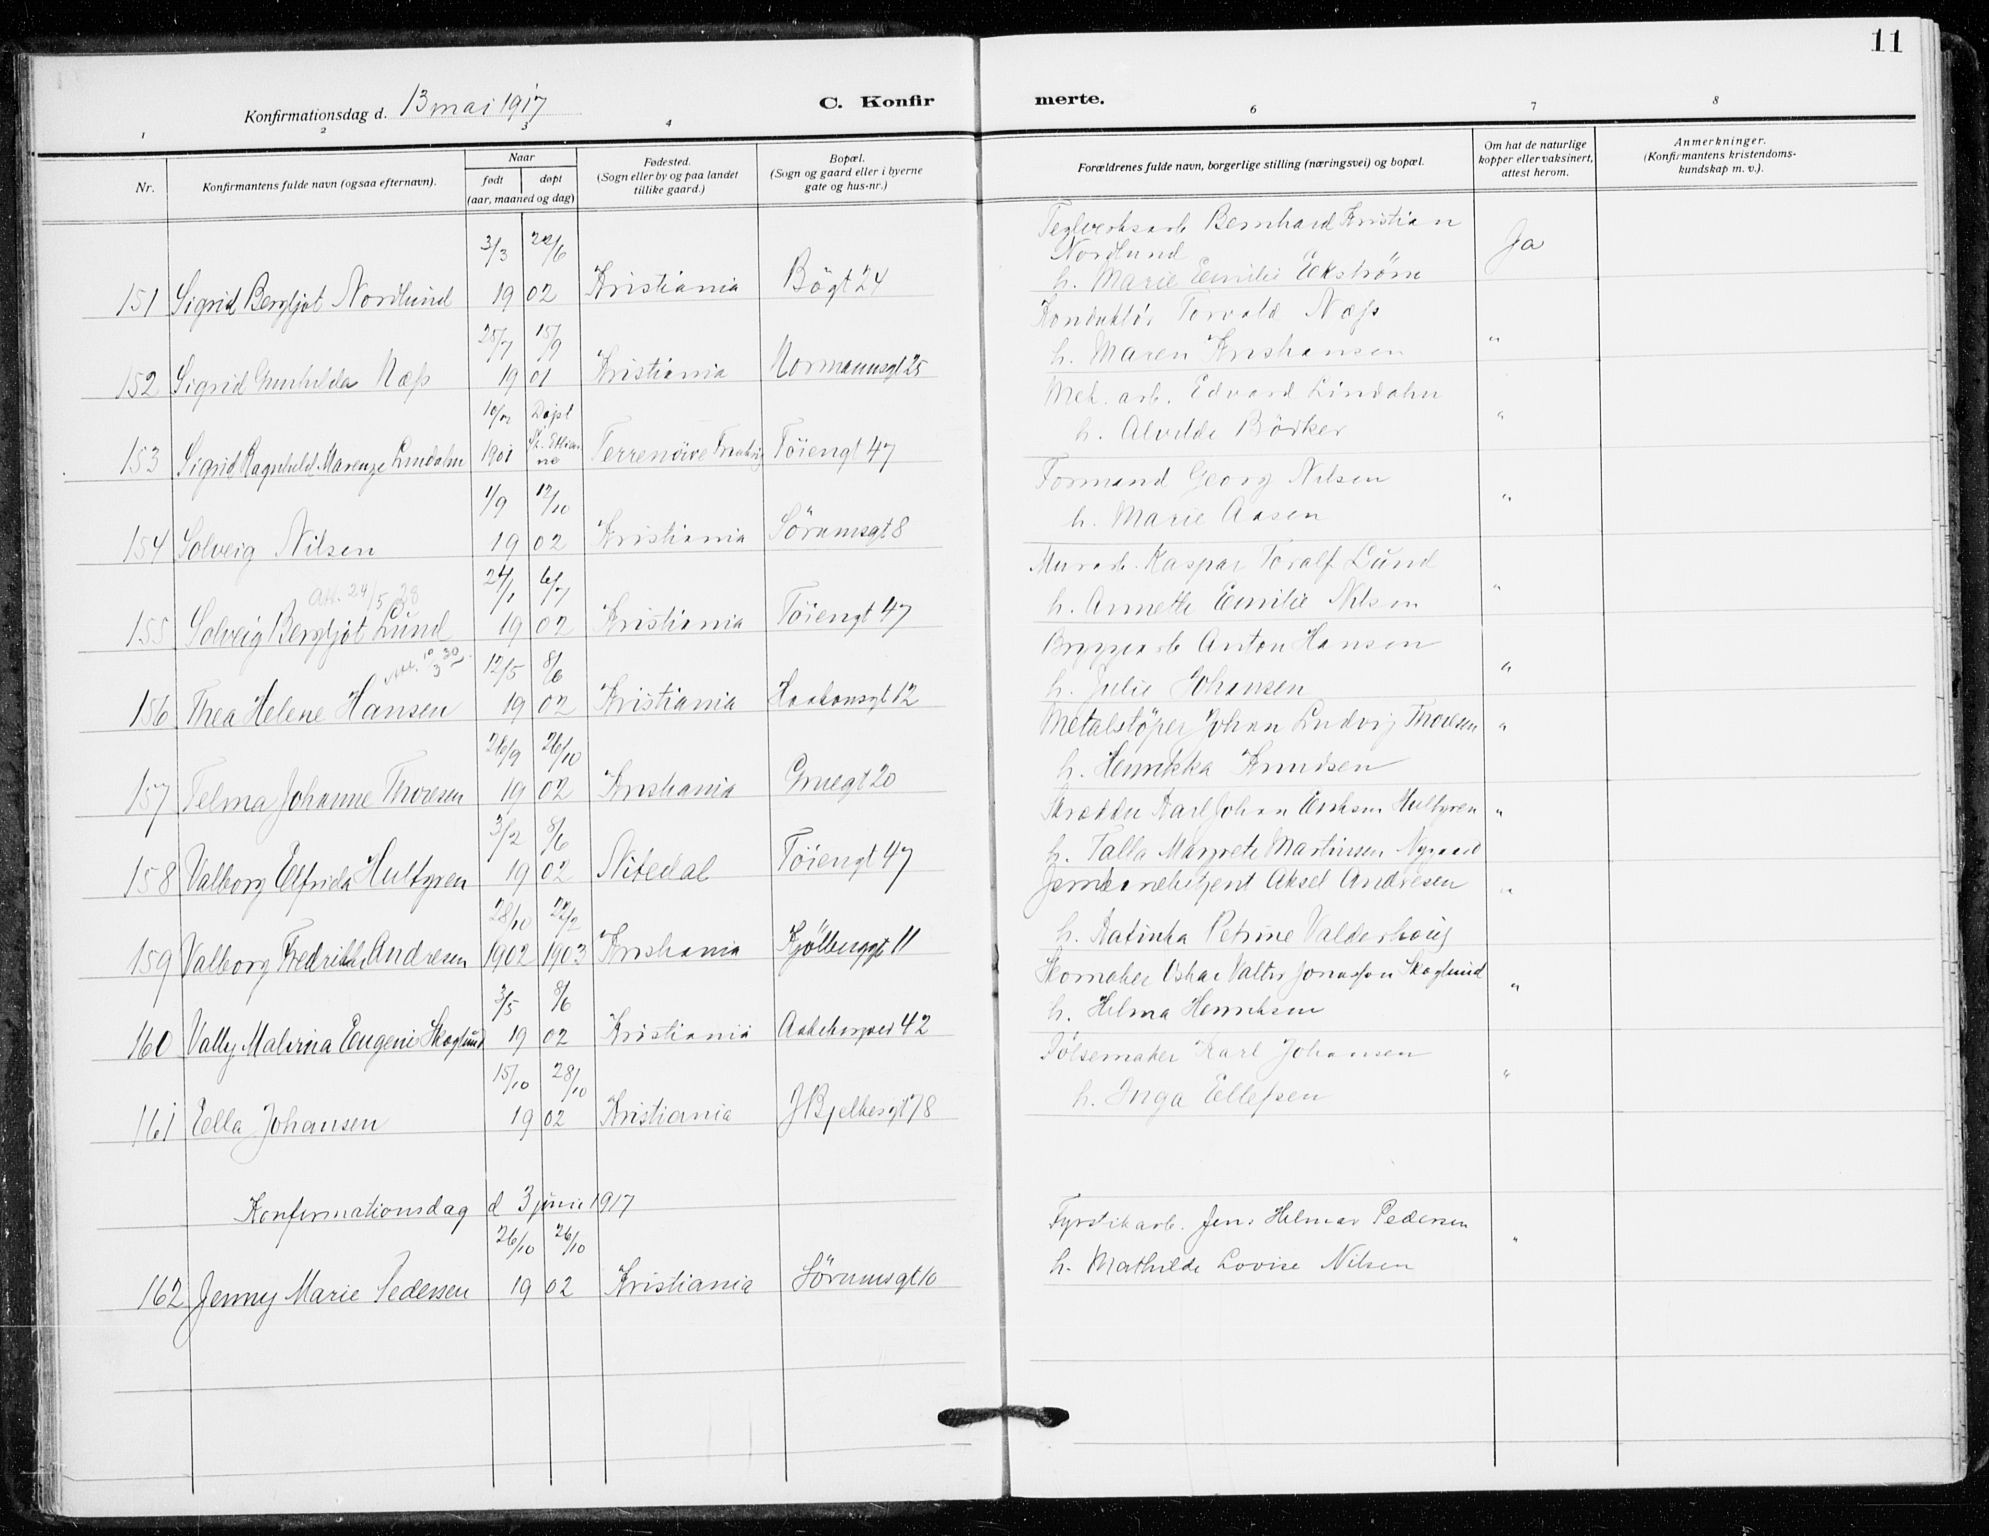 11
Konfirmationsdag d. 13 mai 1917
C. Konfirmerte.
1 2 3 4 6 7 8
Nr.
Konfirmantens fulde navn (ogsaa efternavn).
Naar
født døpt
(aar, maaned og dag)
Fødested.
(Sogn eller by og paa landet
tillike gaard.)
Bopæl.
(Sogn og gaard eller i byerne
gate og hus-nr.)
Forældrenes fulde navn, borgerlige stilling (næringsvei) og bopæl.
Om hat de naturlige
kopper eller vaksinert,
attest herom.
Anmerkninger.
(Konfirmantens kristendoms-
kundskap m. v.).
3/3 22/6 Teglverksarb Bernhard Kristian
Nordlund Ja
151 Sigrid Bergljot Nordlund 19 02 Kristiania Bögt 24 h. Marie Emilie Eckström
25/7 15/9 Konduktör Torvald Næss
152 Sigrid Gunhilda Næss 19 01 Kristiania Normannsgt 25 h. Maren Kristiansen "
Døpt Mek. arb. Edvard Lindahn
153 Sigrid Ragnhild Lindahn 1901 Töiengt 47 h. Alvilde Börker "
1/9 12/10 Formand Georg Nilsen
154 Solveig Nilsen 19 02 Kristiania Sörumsgt 8 h. Marie Aasen "
Att. 24/5 28
24/1 6/7 Murarb. Kaspar Toralf Lund
155 Solveig Bergljot Lund 19 02 Kristiania Töiengt 47 h. Annette Emilie Nilsen "
Att. 10/3 30
12/5 8/6 Bryggearb Anton Hansen
156 Thea Helene Hansen 19 02 Kristiania Haakonsgt 12 h. Julie Johansen "
26/9 26/10 Metalstöper Johan Ludvig Thoresen
157 Telma Johanne Thoresen 19 02 Kristiania Gruegt 20 h. Henrikka Knudsen "
3/2 8/6 Skrædder Karl Johan Eriksen Hultgren
158 Valborg Elfrida Hultgren 19 02 Nitedal Töiengt 47 h. Talla Margrete Martinsen Nygaard "
28/10 22/2 Jernbanebetjent Aksel Andresen
159 Valborg Fredrikke Andresen 1902 1903 Kristiania Kjölberggt 11 h. Katinka Petrine Valderhaug "
3/5 8/6 Skomaker Oskar Valter Jonasson Skoglund
160 Vally Malvina Eugenie Skoglund 19 02 Kristiania Aakebergvei 42 h. Helma Henriksen "
15/10 28/10 Pölsemaker Karl Johansen
161 Ella Johansen 19 02 Kristiania J Bjelkesgt 78 h. Inga Ellefsen "
Konfirmationsdag d 3 juni 1917
26/10 26/10 Fyrstikarb. Jens Hilmar Pedersen
162 Jenny Marie Pedersen 19 02 Kristiania Sörumsgt 10 h. Mathilde Lovise Nilsen "